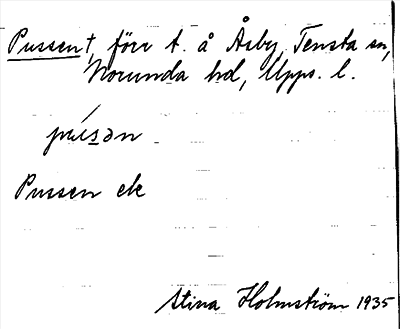 Pussen†, förr t. å Åsby, Tensta sn,
Norunda hd, Upps. l.
púsən
Pussen ek
Stina Holmström 1935